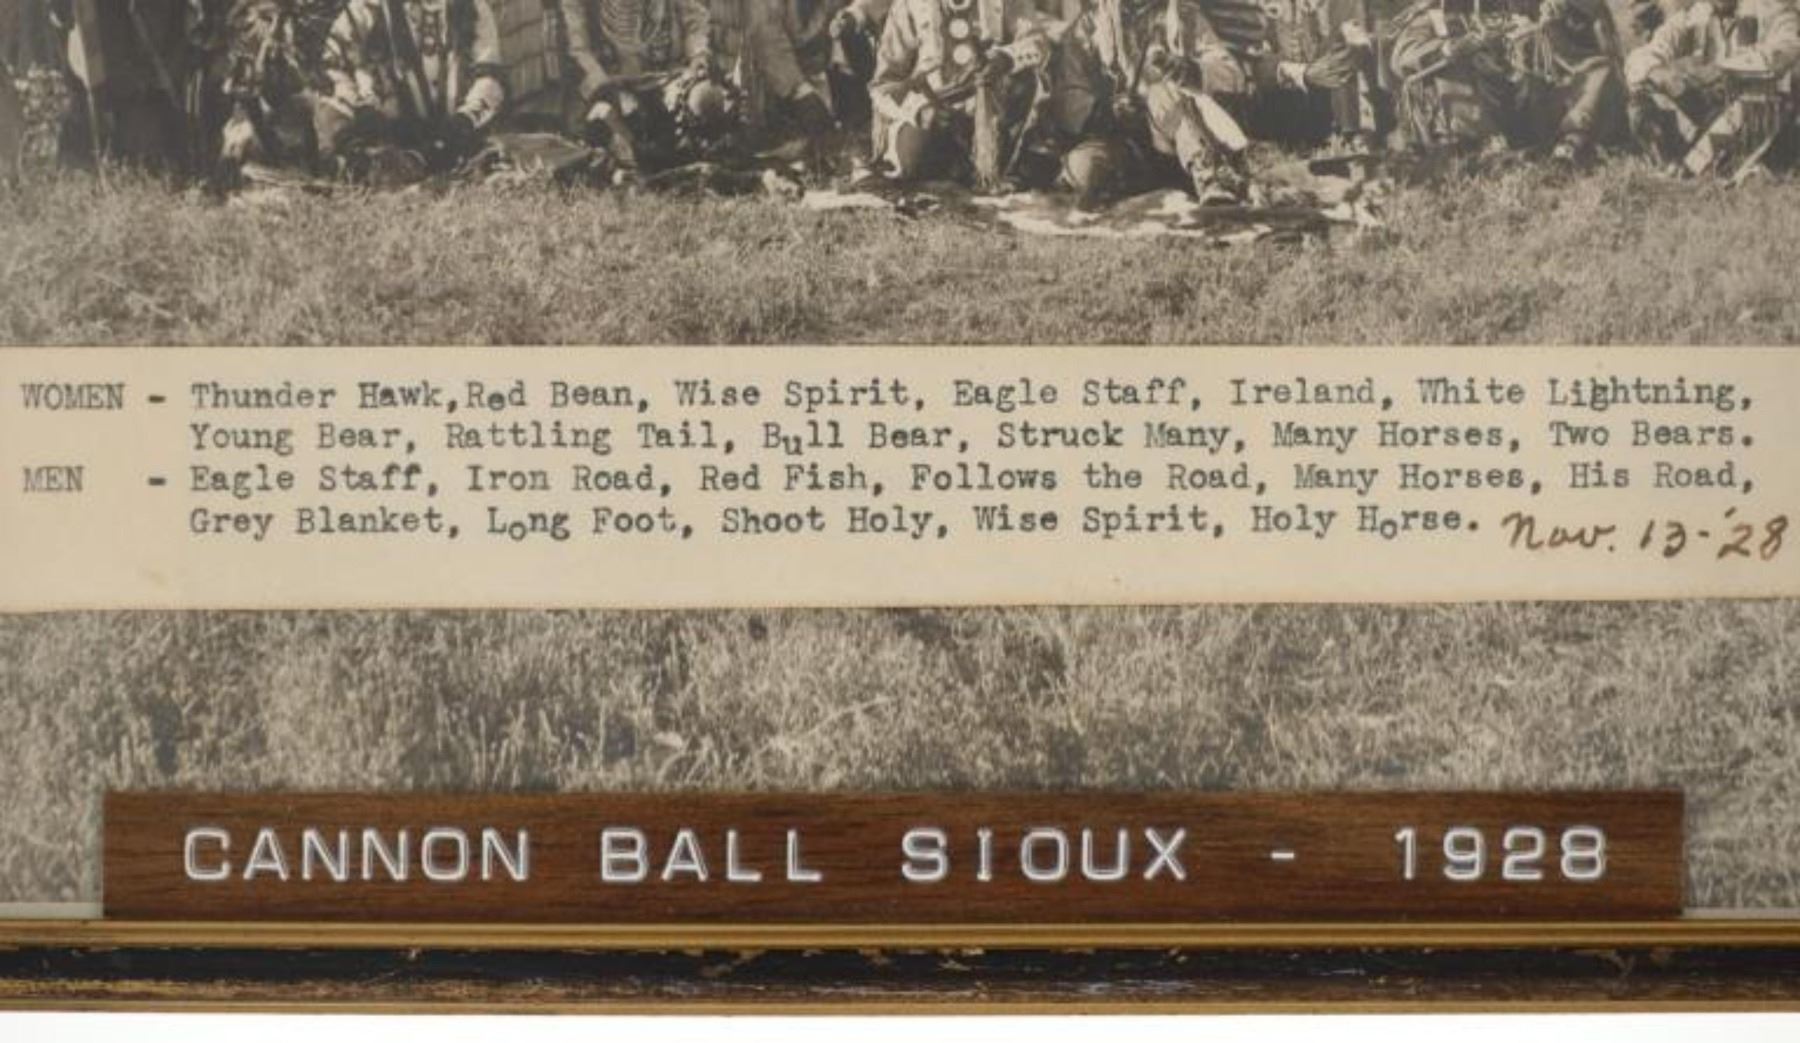 WOMEN - Thunder Hawk,Red Bean, Wise Spirit, Eagle Staff, Ireland, White Lightning,
Young Bear, Rattling Tail, Bull Bear, Struck Many, Many Horses, Two Bears.
MEN - Eagle Staff, Iron Road, Red Fish, Follows the Road, Many Horses, His Road,
Grey Blanket, Long Foot, Shoot Holy, Wise Spirit, Holy Horse. Nov. 13-'28
CANNON BALL SIOUX - 1928